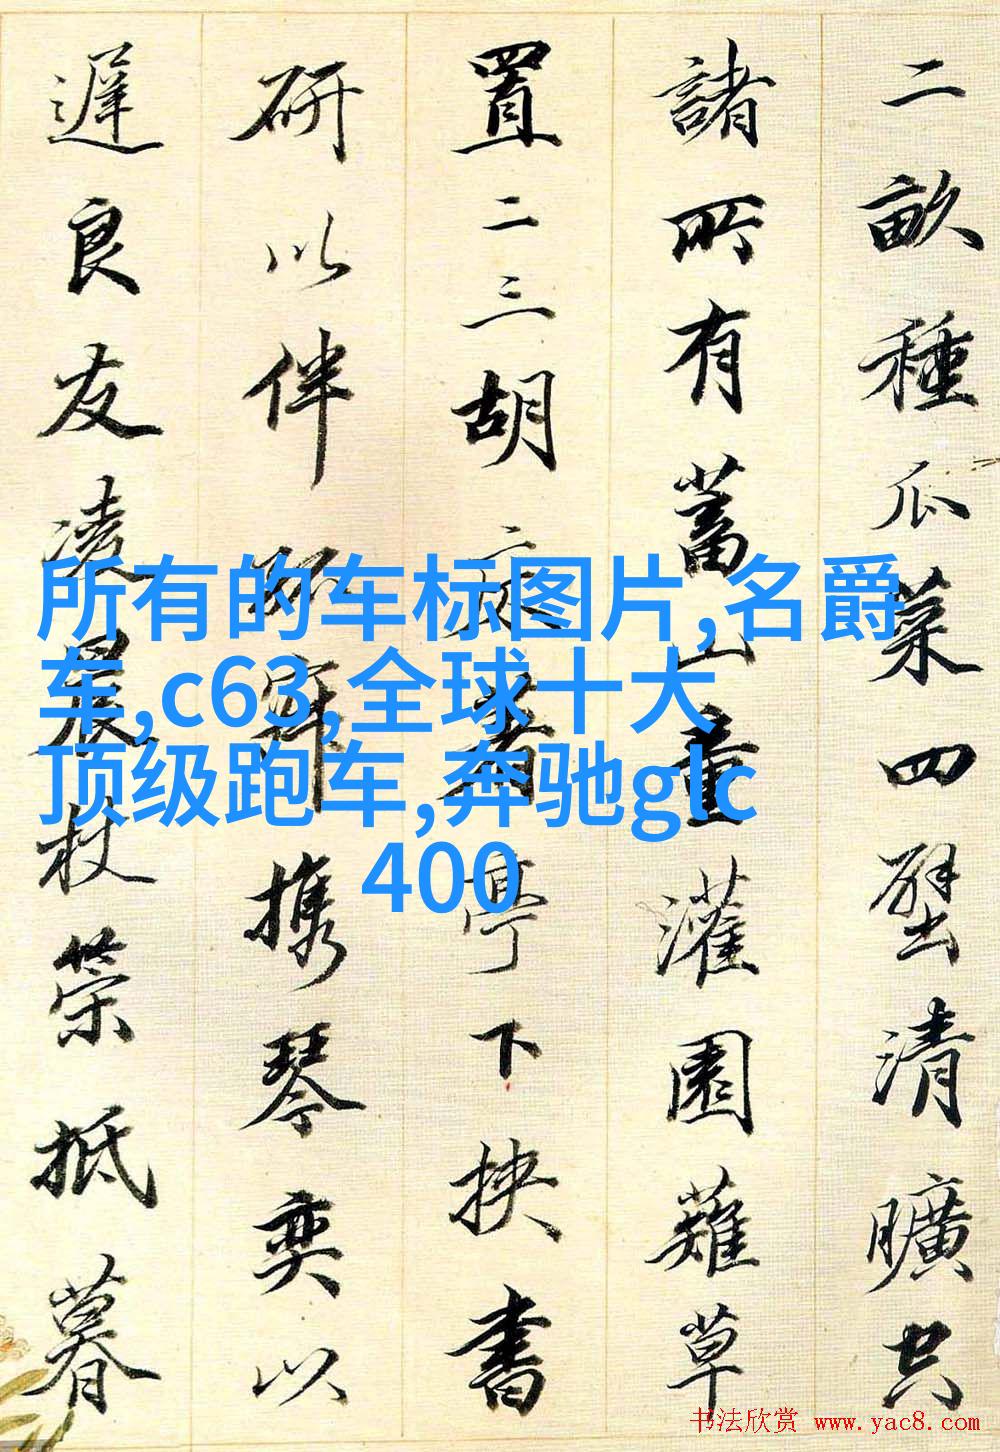 二畝種瓜菜四壁清曠空
諸所有蓄山童灌園薙草
置二三胡床著亭下挾書
研以伴孤寂携琴奕以
遲良友凌晨杖策抵暮
所有的车标图片,名爵
车,c63,全球十大
顶级跑车,奔驰glc
400
书法欣赏 www.yac8.com